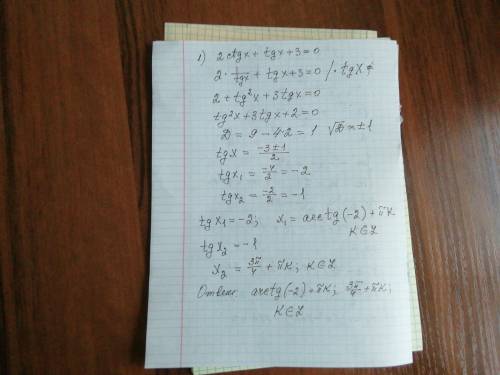 1) 2ctgx + tgx + 3 = 0
2 · 1/tgx + tgx + 3 = 0 / · tgx ≠
2 + tg²x + 3tgx = 0
tg²x + 3tgx + 2 = 0
D = 9 - 4·2 = 1 √D = ±1
tgx = (-3±1)/2
tgx₁ = -4/2 = -2
tgx₂ = -2/2 = -1
tgx₁ = -2; x₁ = arctg(-2) + πk
k∈Z
tgx₂ = -1
x₂ = 3π/4 + πk; k∈Z
Ответ: arctg(-2) + πk; 3π/4 + πk;
k∈Z